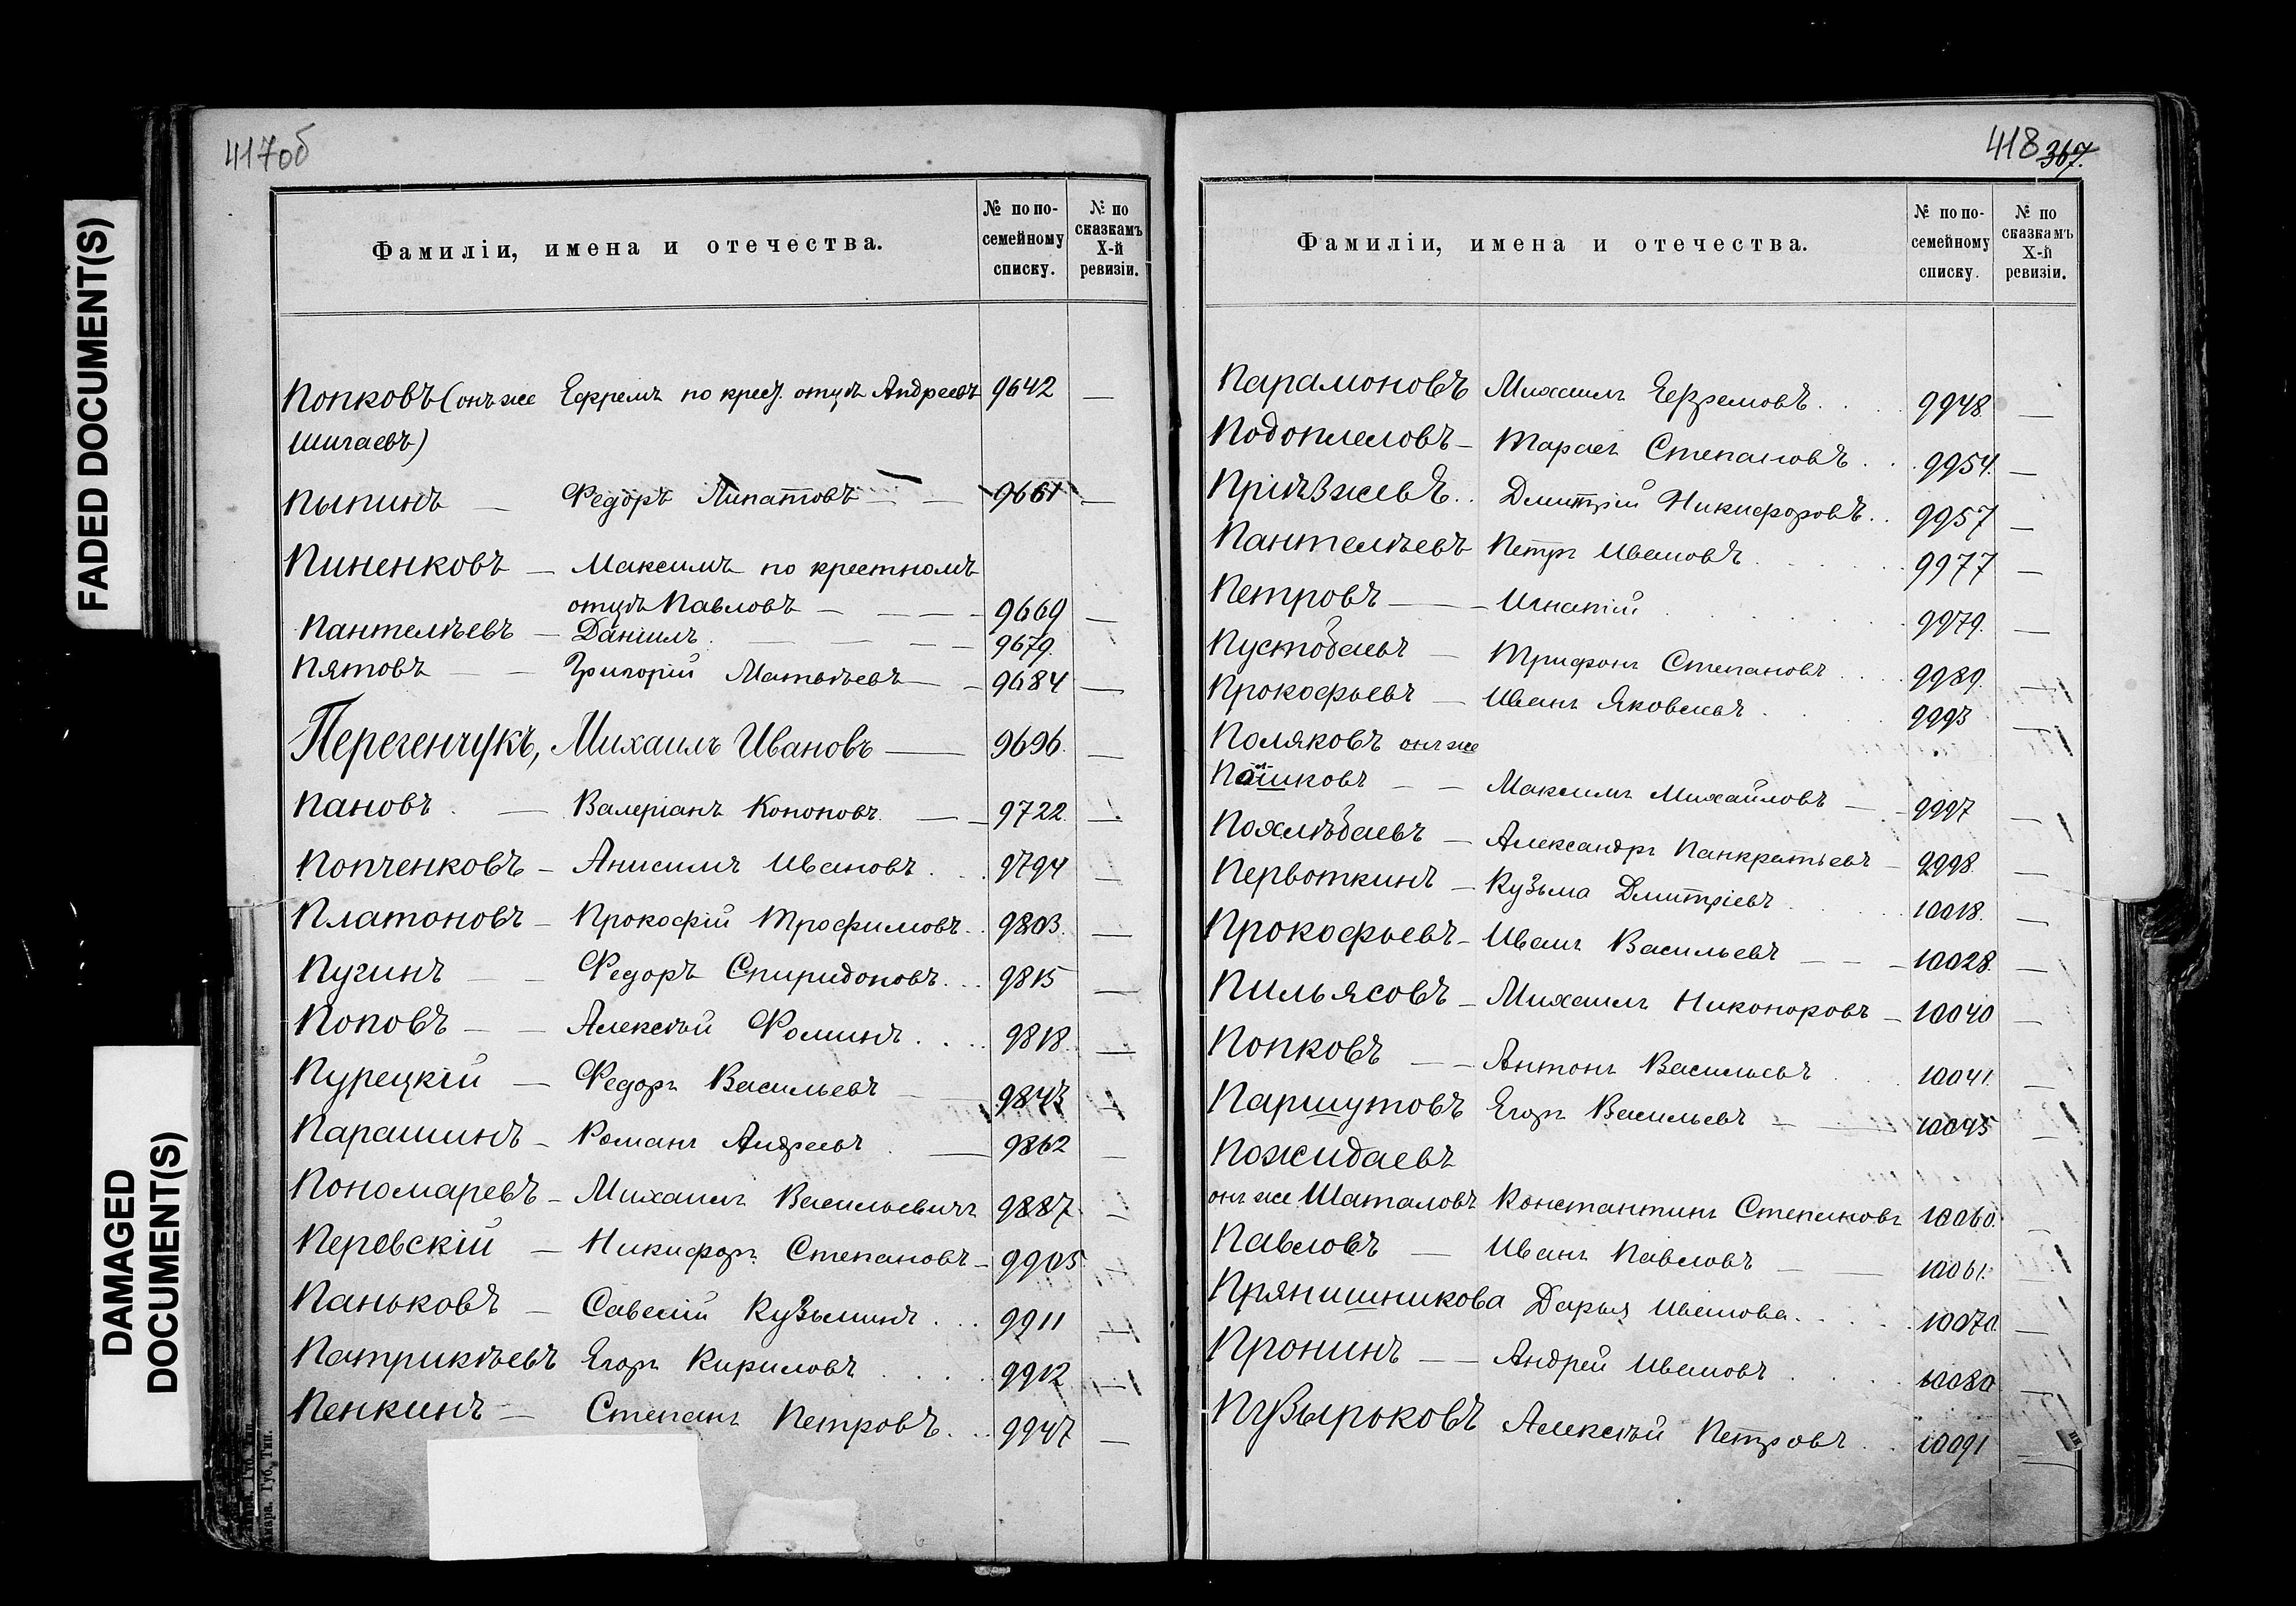 417об
Фамиліи, имена и отечества. № по посемейному списку. № по сказкамъ X-й ревизіи.
Попковъ (онъ же Ефремъ по крест. отцѣ Андреевъ 9642 —
Шигаевъ)
Пыпинъ — Федоръ Липатовъ — — 9661 —
Пиненковъ — Максимъ по крестномъ
отцѣ Павловъ — — — — 9669 —
Пантелѣевъ — Даніилъ. — — — — 9679.
Пятовъ — — Григорій Матвѣевъ — — 9684 —
Перегенчукъ, Михаилъ Ивановъ — 9696. —
Пановъ. — Валеріанъ Кононовъ. — — 9722. —
Попченковъ — Анисимъ Ивановъ. . . 9794 —
Платоновъ — Прокофій Трофимовъ. . 9803. —
Пугинъ — — Федоръ Спиридоновъ. . . 9815 —
Поповъ — — Алексѣй Фоминъ. . . 9818. —
Пурецкій — Федоръ Васильевъ — — 9843 —
Парашинъ — Романъ Андреевъ. — 9862 —
Пономаревъ — Михаилъ Васильевичъ 9887. —
Перовскій — Никифоръ Степановъ — 9905
Паньковъ — Савелій Кузьминъ. . . 9911 —
Патрикѣевъ Егоръ Кириловъ . . . . 9912 —
Пенкинъ — Степанъ Петровъ. . . 9947 —
418 367.
Фамиліи, имена и отечества. № по посемейному списку. № по сказкамъ X-й ревизіи.
Парамоновъ Михаилъ Ефремовъ. . . . 9948 —
Подоплеловъ — Тарасъ Степановъ. . . 9954. —
Пріѣзжевъ. . Дмитрій Никифоровъ. . 9957 —
Пантелѣевъ Петръ Ивановъ. . . . . 9977 —
Петровъ — — Игнатій . . . . . . 9979. —
Пустобаевъ — Трифонъ Степановъ . . . . 9989. —
Прокофьевъ — Иванъ Яковлевъ . . . 9993 —
Поляковъ онъ же
Пашковъ — — Максимъ Михайловъ — — 9997 —
Похлѣбаевъ — Александръ Панкратьевъ — 9998. —
Первоткинъ — Кузьма Дмитріевъ . . . . 10018. —
Прокофьевъ — Иванъ Васильевъ — — — 10028. —
Пильясовъ — Михаилъ Никоноровъ — 10040 —
Попковъ — — Антонъ Васильевъ . . . 10041. —
Паршутовъ Егоръ Васильевъ — — 10045 —
Пожидаевъ
онъ же Шаталовъ Константинъ Степановъ 10060. —
Павловъ — Иванъ Павловъ — — 10061. —
Прянишникова Дарья Иванова. . . . . 10070. —
Пронинъ — — Андрей Ивановъ . . . . 10080 —
Пузырьковъ Алексѣй Петровъ . . 10091 —
FADED DOCUMENT(S)
DAMAGED
DOCUMENT(S)